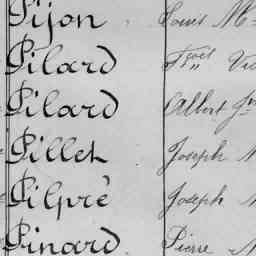 Pijon Louis M
Pilard Fçois Vic
Pilard Albert Jn
Pillet Joseph
Pilprè Joseph
Pinard Pierre